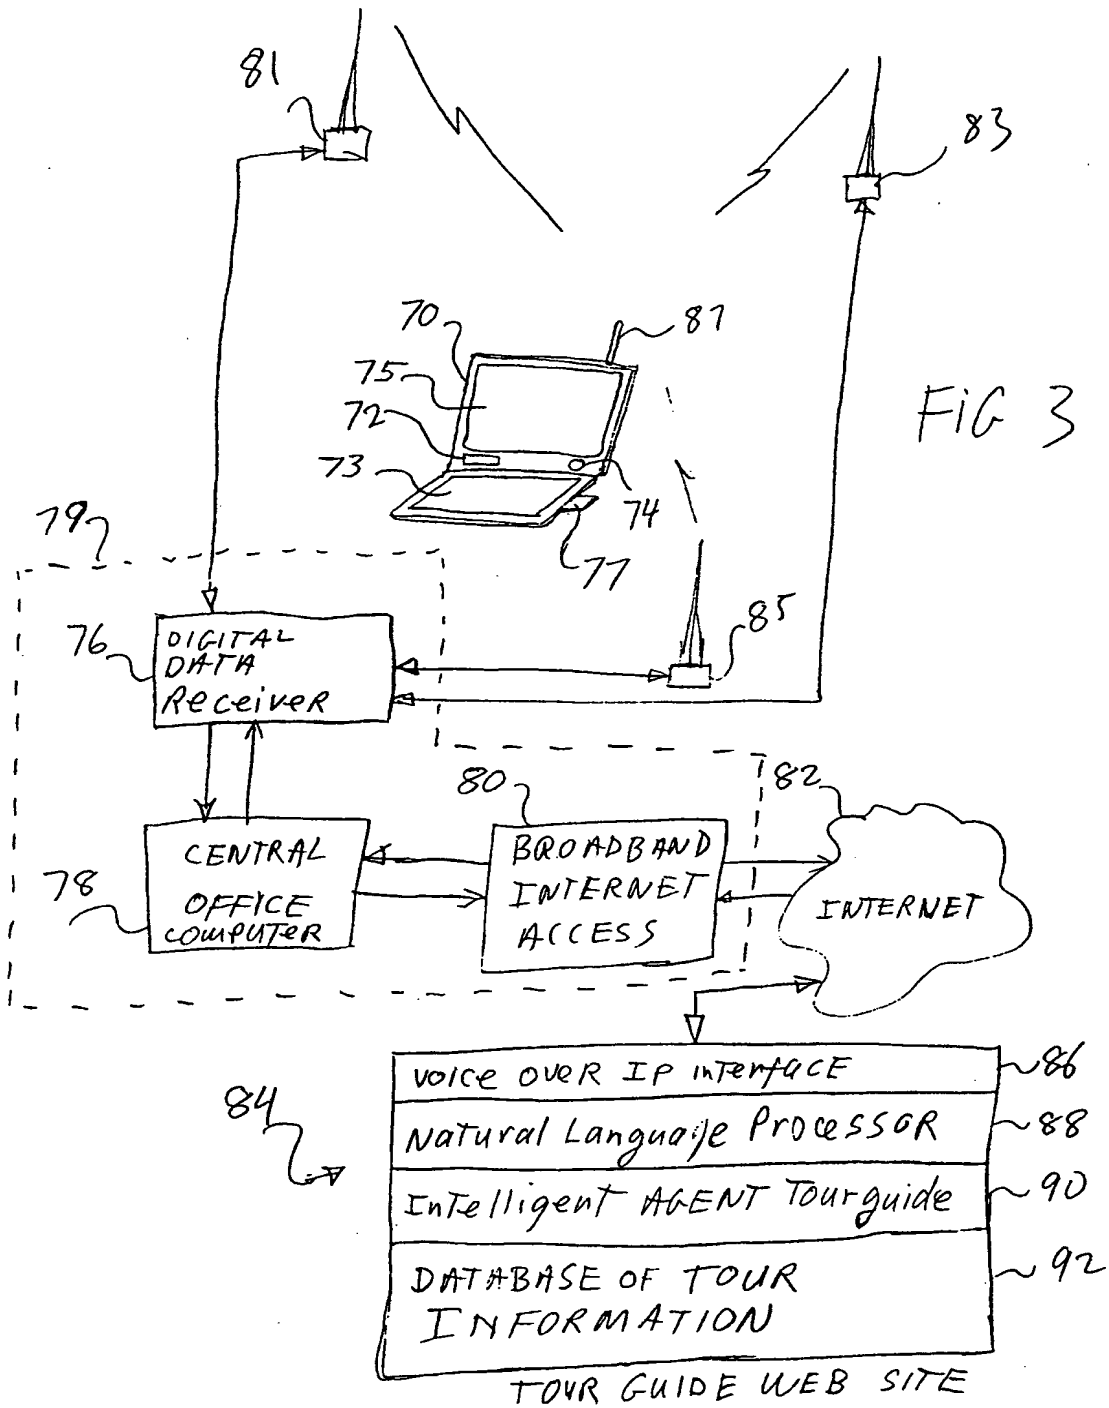 81
83
70
87
75
72
73
74
77
FIG 3
79
85
76
DIGITAL
DATA
Receiver
80
82
78
CENTRAL
OFFICE
COMPUTER
BROADBAND
INTERNET
ACCESS
INTERNET
84
VOICE OVER IP INTERFACE
86
Natural Language Processor
88
Intelligent AGENT Tourguide
90
DATABASE OF TOUR
INFORMATION
92
TOUR GUIDE WEB SITE